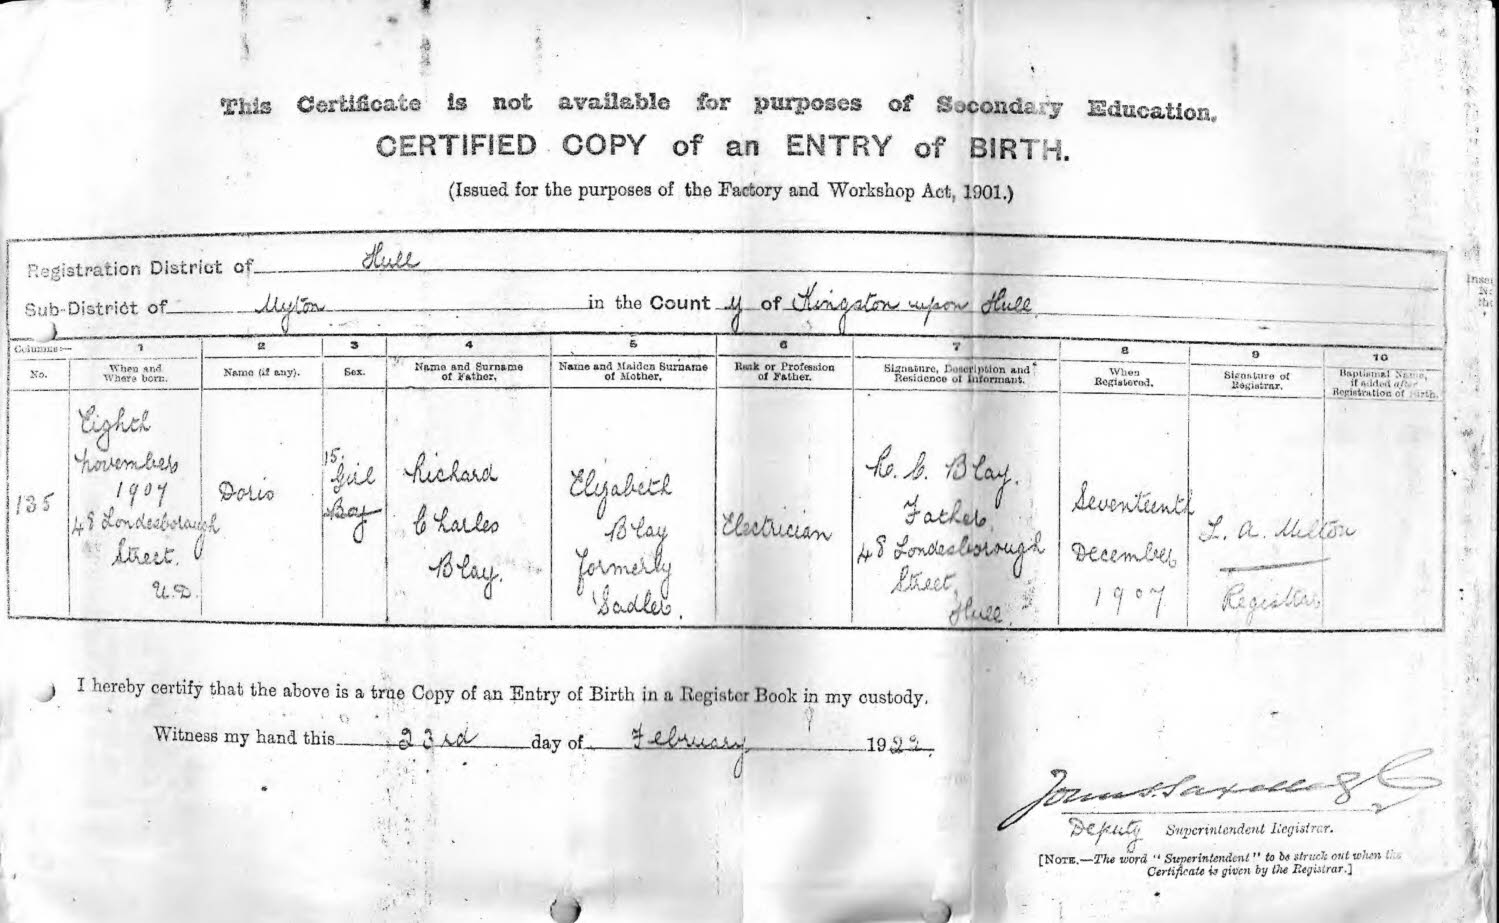 This Certificate is not available for purposes of Secondary Education.
CERTIFIED COPY of an ENTRY of BIRTH.
(Issued for the purposes of the Factory and Workshop Act, 1901.)
Registration District of Hull
Sub-District of Myton in the County of Kingston upon Hull
Columns:— 1 2 3 4 5 6 7 8 9 10
No.
When and
Where born.
Name (if any).
Sex.
Name and Surname
of Father.
Name and Maiden Surname
of Mother.
Rank or Profession
of Father.
Signature, Description and
Residence of Informant.
When
Registered.
Signature of
Registrar.
Baptismal Name,
if added after
Registration of Birth.
135
Eighth
November
1907
48 Londesborough
Street.
U.D.
Doris
15.
Girl
Boy
Richard
Charles
Blay.
Elizabeth
Blay
formerly
Sadler.
Electrician
R. C. Blay.
Father
48 Londesborough
Street,
Hull.
Seventeenth
December
1907
L. A. Milton
Registrar
I hereby certify that the above is a true Copy of an Entry of Birth in a Register Book in my custody.
Witness my hand this 23rd day of February 1922.
Deputy Superintendent Registrar.
[NOTE.—The word "Superintendent" to be struck out when the
Certificate is given by the Registrar.]